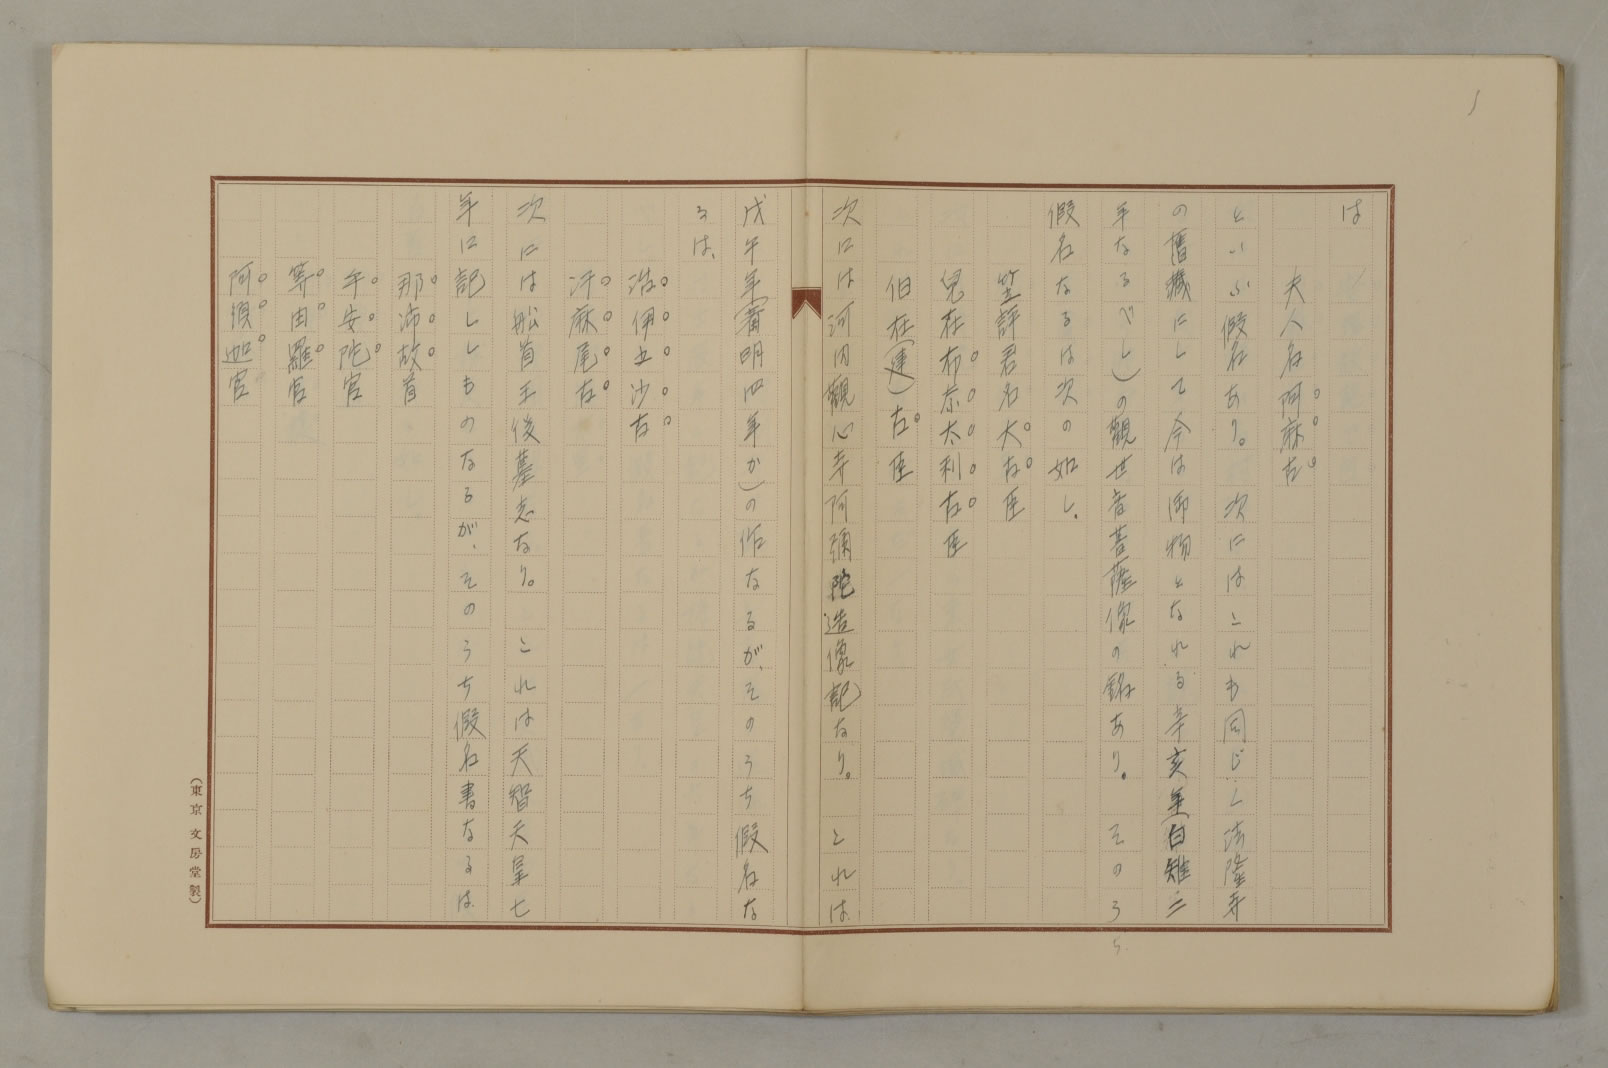 は
夫人名阿麻古
といふ假名あり。　次にはこれも同じく法隆寺
の舊藏にして今は御物となれる辛亥年(白雉二
年なるべし)の觀世音菩薩像の銘あり。　そのうち
假名なるは次の如し。
笠評君名大古臣
兒在布奈太利古臣
伯在(建)古臣
次には河内觀心寺阿彌陀造像記なり。　これは
戊午年(齊明四年か)の作なるが、そのうち假名な
るは、
汙麻尾古
次には船首王後墓志なり。　これは天智天皇七
年に記ししものなるが、そのうち假名書なるは
那沛故首
乎安陀宮
等由羅宮
阿須迦宮
(東京 文房堂製)